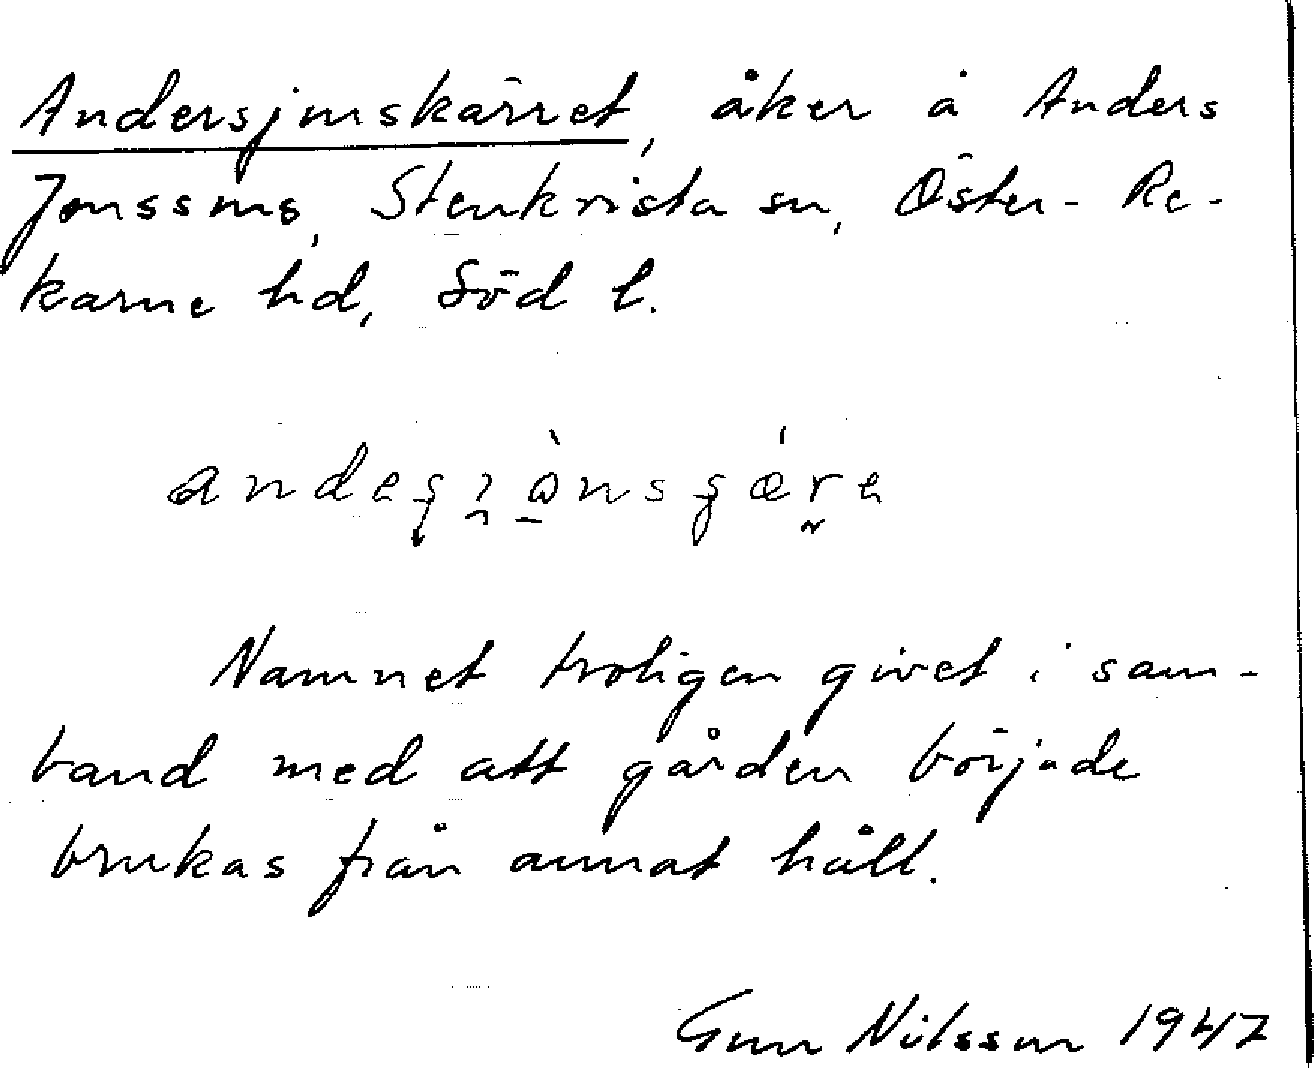 Andersjonskärret, åker å Anders
Jonssons, Stenkvista sn, Öster-Re-
karne hd, Söd l.
Namnet troligen givet i sam-
band med att gården började
brukas från annat håll.
Gun Nilsson 1947